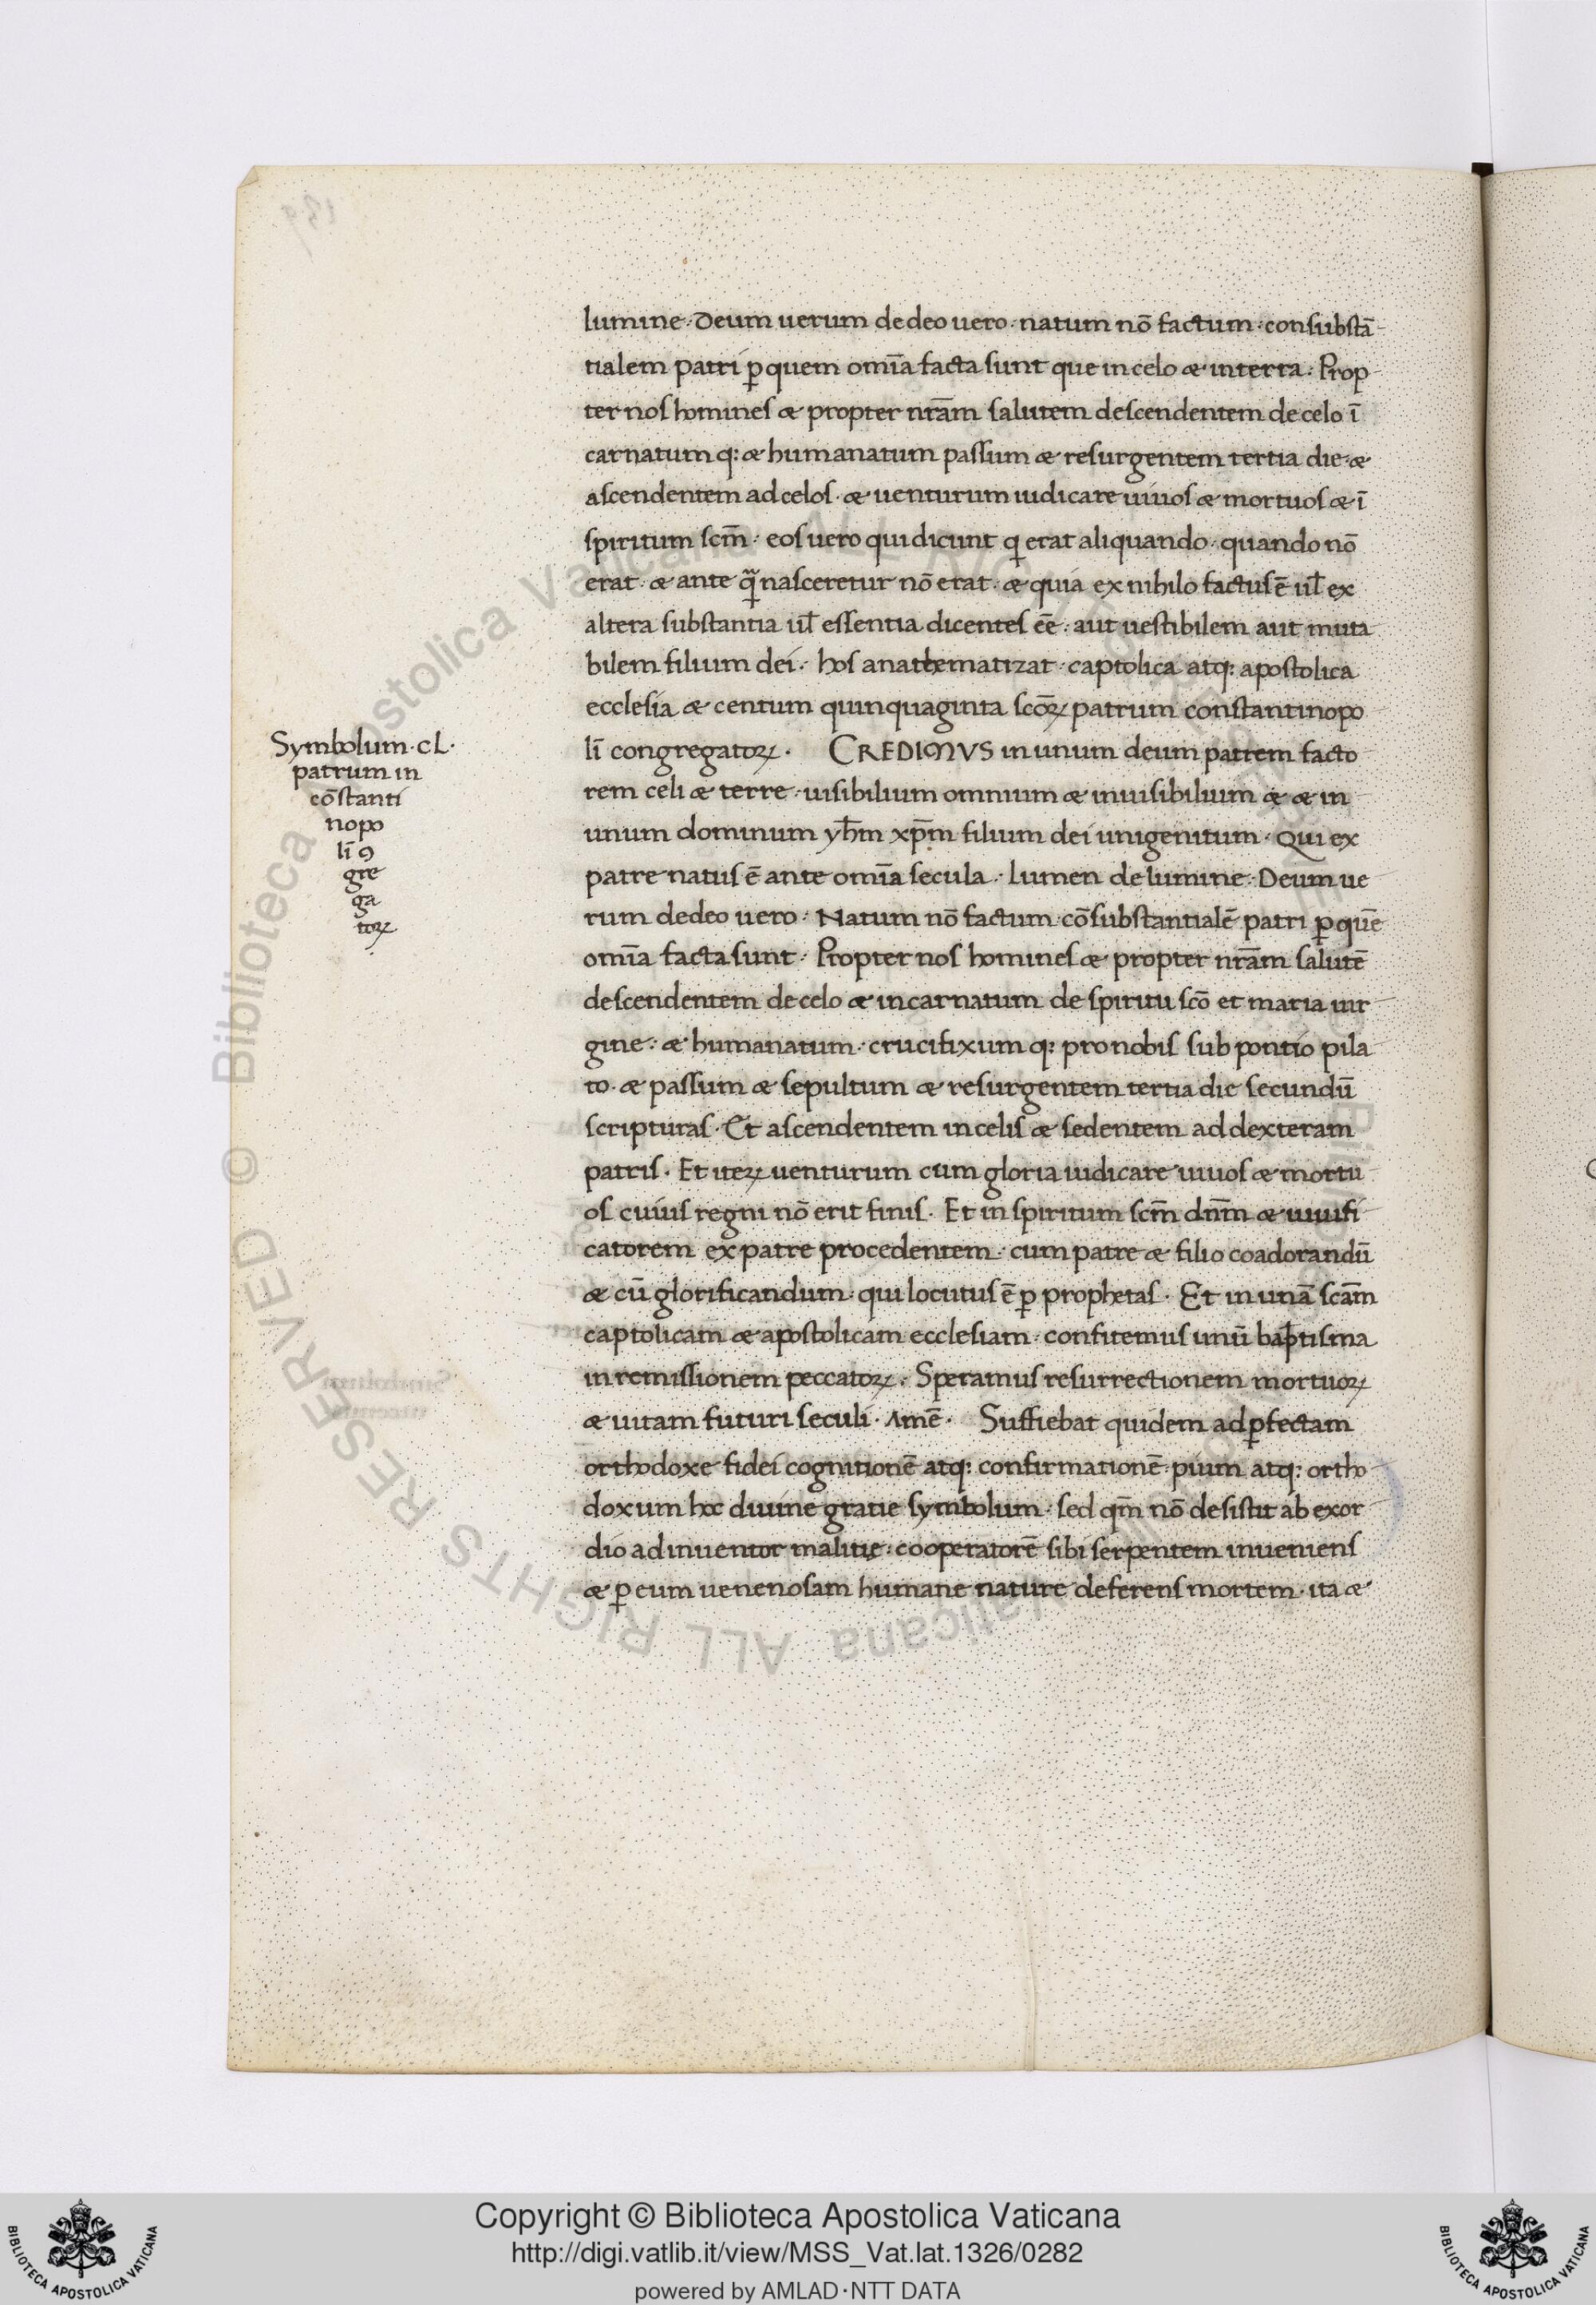 lumine · Deum uerum de deo uero · natum nō factum · consubstā
tialem patri ꝑ quem omīa facta sunt que in celo æ in terra · Prop
ter nos homines æ propter nr̄am salutem descendentem de celo ī
carnatum q: æ humanatum passum æ resurgentem tertia die · æ
ascendentem ad celos · æ uenturum iudicare uiuos æ mortuos æ ī
spiritum scm̄ · eos uero qui dicunt ꝙ erat aliquando · quando nō
erat · æ ante q̄ꝫ nasceretur nō erat · æ quia ex nihilo factus ē ul̄ ex
altera substantia ul̄ essentia dicentes eē · aut uestibilem aut muta
bilem filium dei · hos anathematizat · captolica atq: apostolica
ecclesia æ centum quinquaginta scōꝝ patrum constantinopo
lī congregatoꝝ · CREDIMVS in unum deum patrem facto
rem celi æ terre · uisibilium omnium æ inuisibilium æ æ in
unum dominum yh̄m xp̄m filium dei unigenitum · Qui ex
patre natus ē ante omīa secula · lumen de lumine · Deum ue
rum de deo uero · Natum nō factum · cōsubstantialē patri ꝑ quē
omīa facta sunt · Propter nos homines æ propter nr̄am salutē
descendentem de celo æ incarnatum de spiritu scō et maria uir
gine · æ humanatum · crucifixum q: pro nobis sub pontio pila
to · æ passum æ sepultum æ resurgentem tertia die secundū
scripturas · Et ascendentem in celis æ sedentem ad dexteram
patris · Et iteꝝ uenturum cum gloria iudicare uiuos æ mortu
os cuius regni nō erit finis · Et in spiritum scm̄ dnm̄ æ uiuifi
catorem ex patre procedentem · cum patre æ filio coadorandū
æ cū glorificandum · qui locutus ē ꝑ prophetas · Et in unā scām
captolicam æ apostolicam ecclesiam · confitemus unū baptisma
in remissionem peccatoꝝ · Speramus resurrectionem mortuoꝝ
æ uitam futuri seculi · Amē · Suffiebat quidem ad ꝑfectam
orthodoxe fidei cognitionē atq: confirmationē · pium atq: ortho
doxum hoc diuine gratie symbolum · sed qm̄ nō desistit ab exor
dio adinuentor malitię · cooperatorē sibi serpentem inueniens
æ ꝑ eum uenenosam humane nature deferens mortem · ita æ
Symbolum · cL ·
patrum in
cōstanti
nopo
lī ꝯ
gre
ga
toꝝ
© Biblioteca Apostolica Vaticana ALL RIGHTS RESERVED
Copyright © Biblioteca Apostolica Vaticana
http://digi.vatlib.it/view/MSS_Vat.lat.1326/0282
powered by AMLAD·NTT DATA
BIBLIOTECA APOSTOLICA VATICANA
BIBLIOTECA APOSTOLICA VATICANA